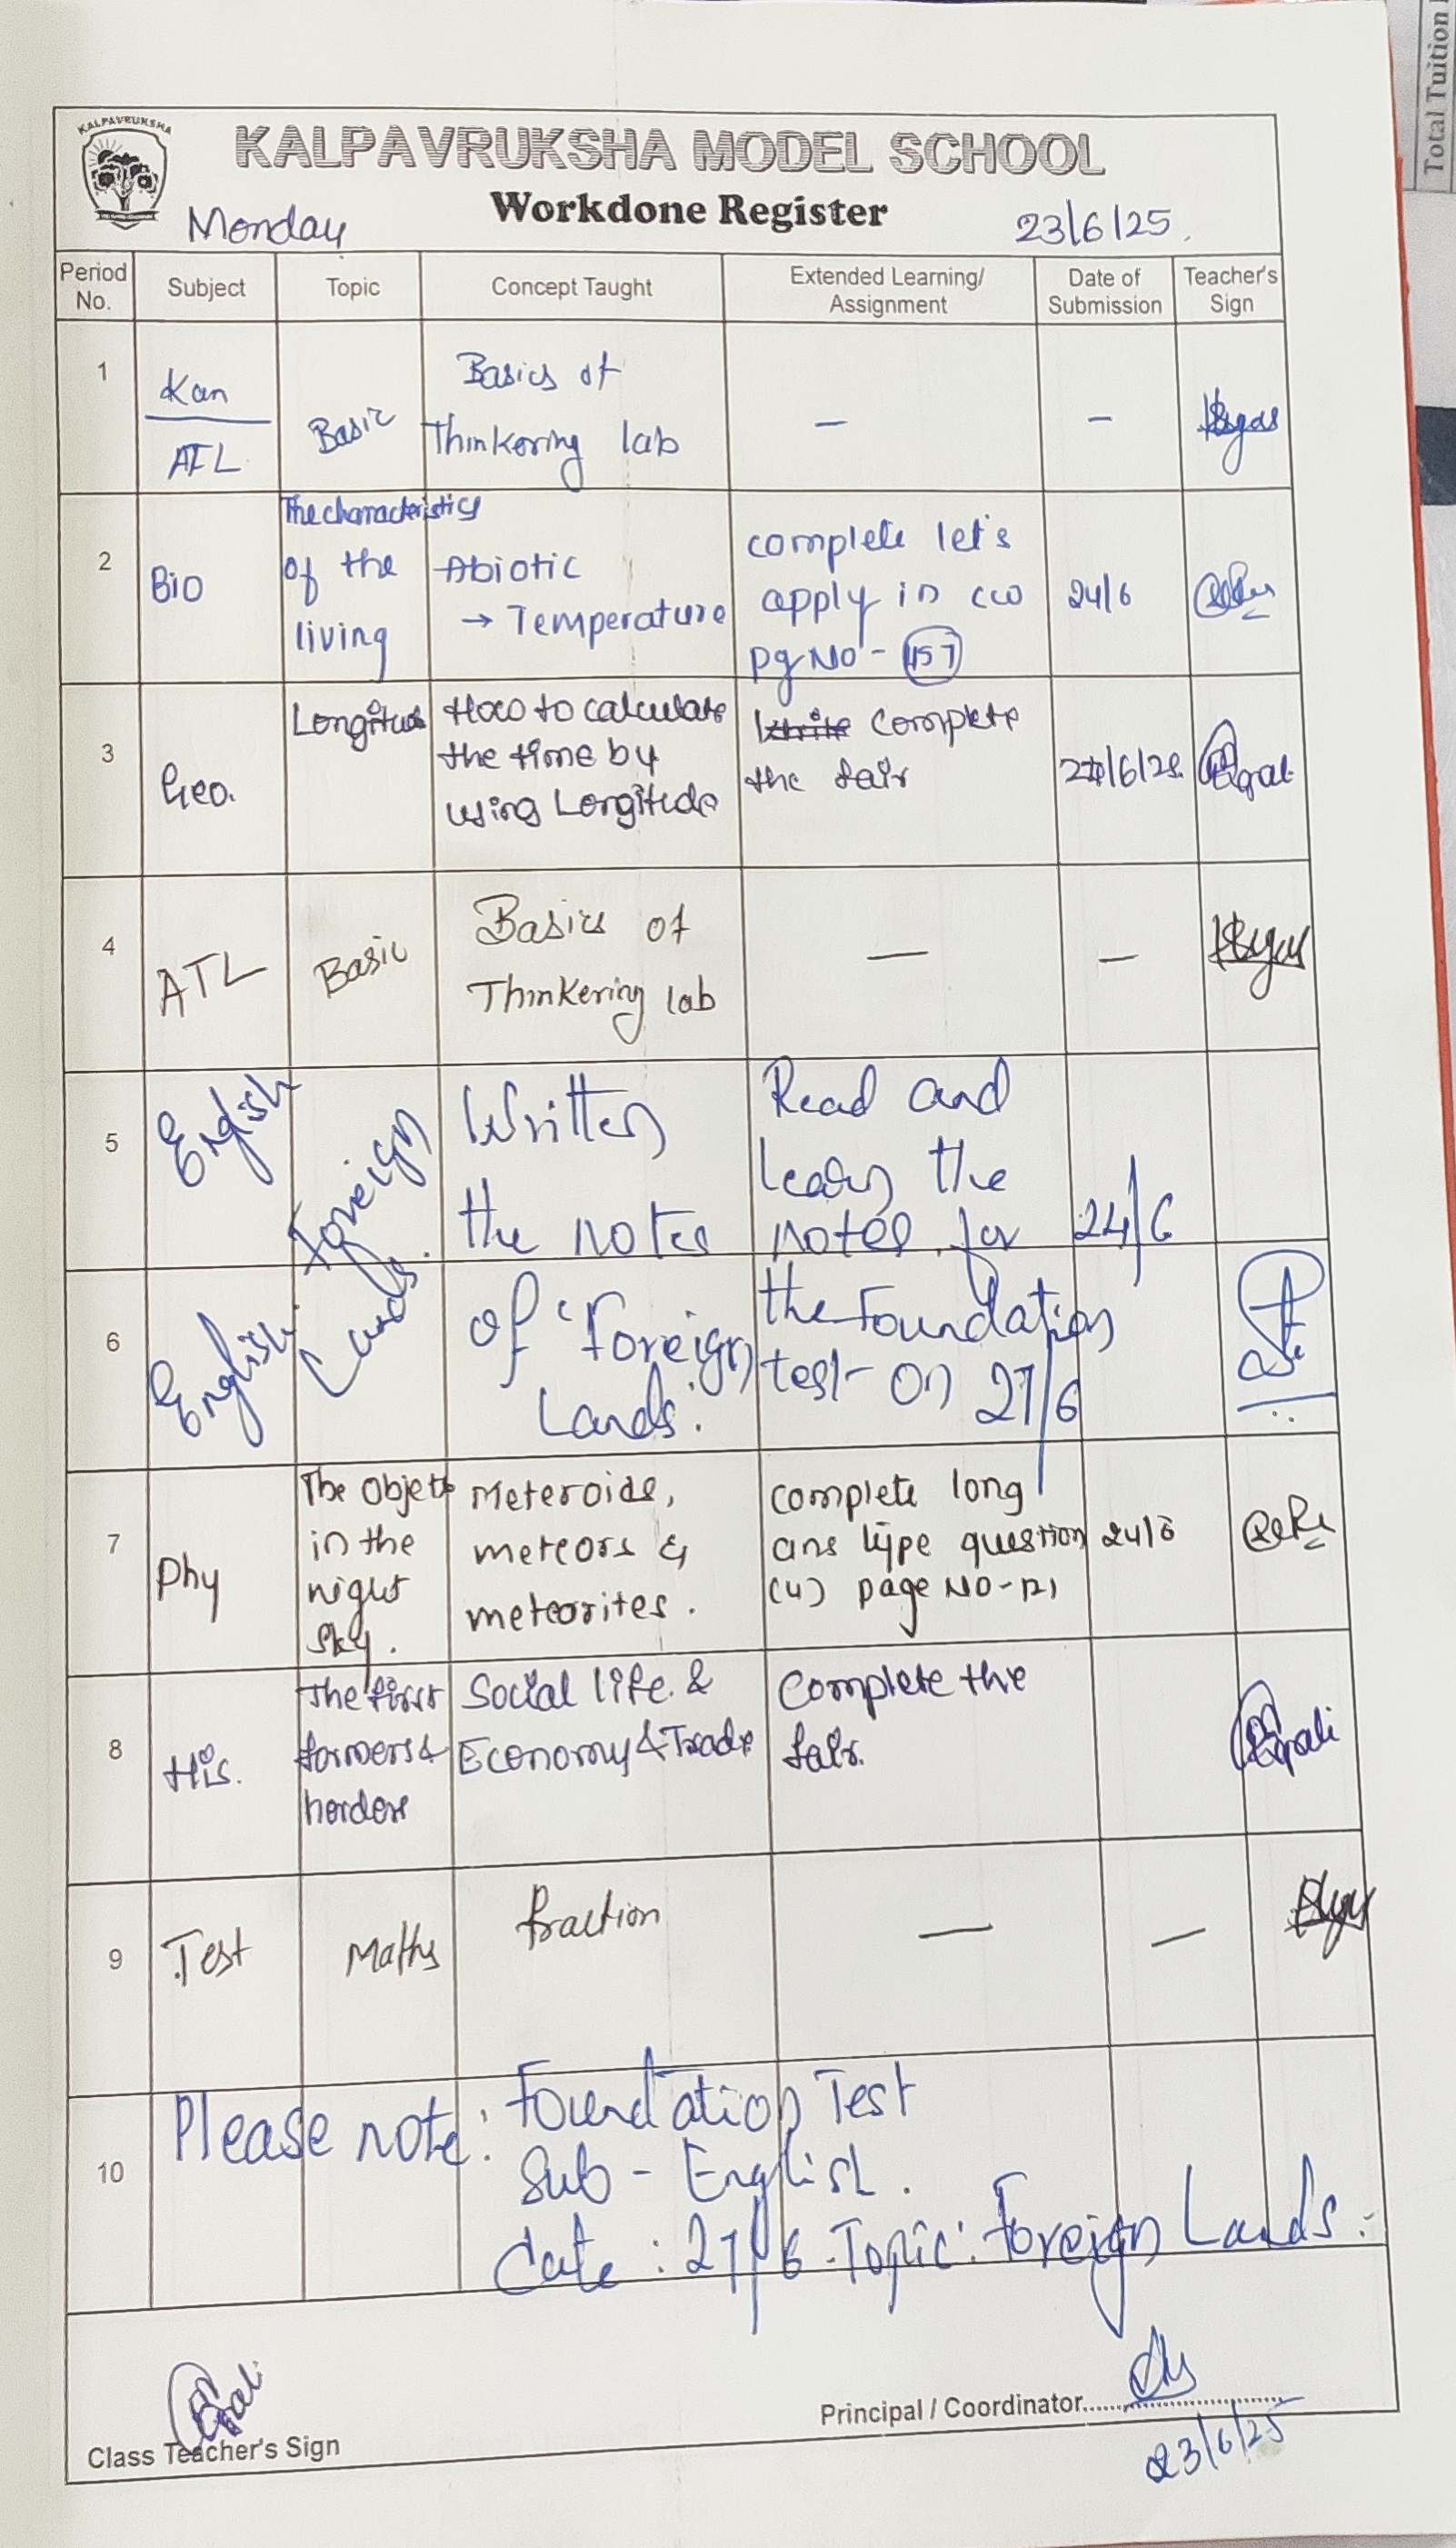 Total Tuition
KALPAVRUKSHA
KALPAVRUKSHA MODEL SCHOOL
Workdone Register
Monday
23/6/25.
Period No.
Subject
Topic
Concept Taught
Extended Learning/ Assignment
Date of Submission
Teacher's Sign
1
Kan
ATL
Basic
Basics of
Thinkering lab
-
-
2
Bio
The characteristics
of the
living
Abiotic
→ Temperature
complete let's
apply in cw
pg No - 157
24/6
3
Geo.
Longitude
How to calculate
the time by
using Longitude
complete
the fair
4
ATL
Basic
Basics of
Thinkering lab
-
-
5
English
Foreign
Lands.
Written
the notes
Read and
learn the
notes for
24/6
6
English
of "Foreign
Lands.
the Foundation
test on 27/6
7
Phy
The Objets
in the
night
sky.
Meteroids,
meteors &
meteorites.
complete long
ans type question
(4) page NO-121
24/6
8
His.
The first
farmers &
herders
Social life &
Economy & Trade
Complete the
fair.
9
Test
Maths
fraction
-
-
10
Please note: Foundation Test
Sub - English.
date: 27/6. Topic: Foreign Lands.
Class Teacher's Sign
Principal / Coordinator
23/6/25